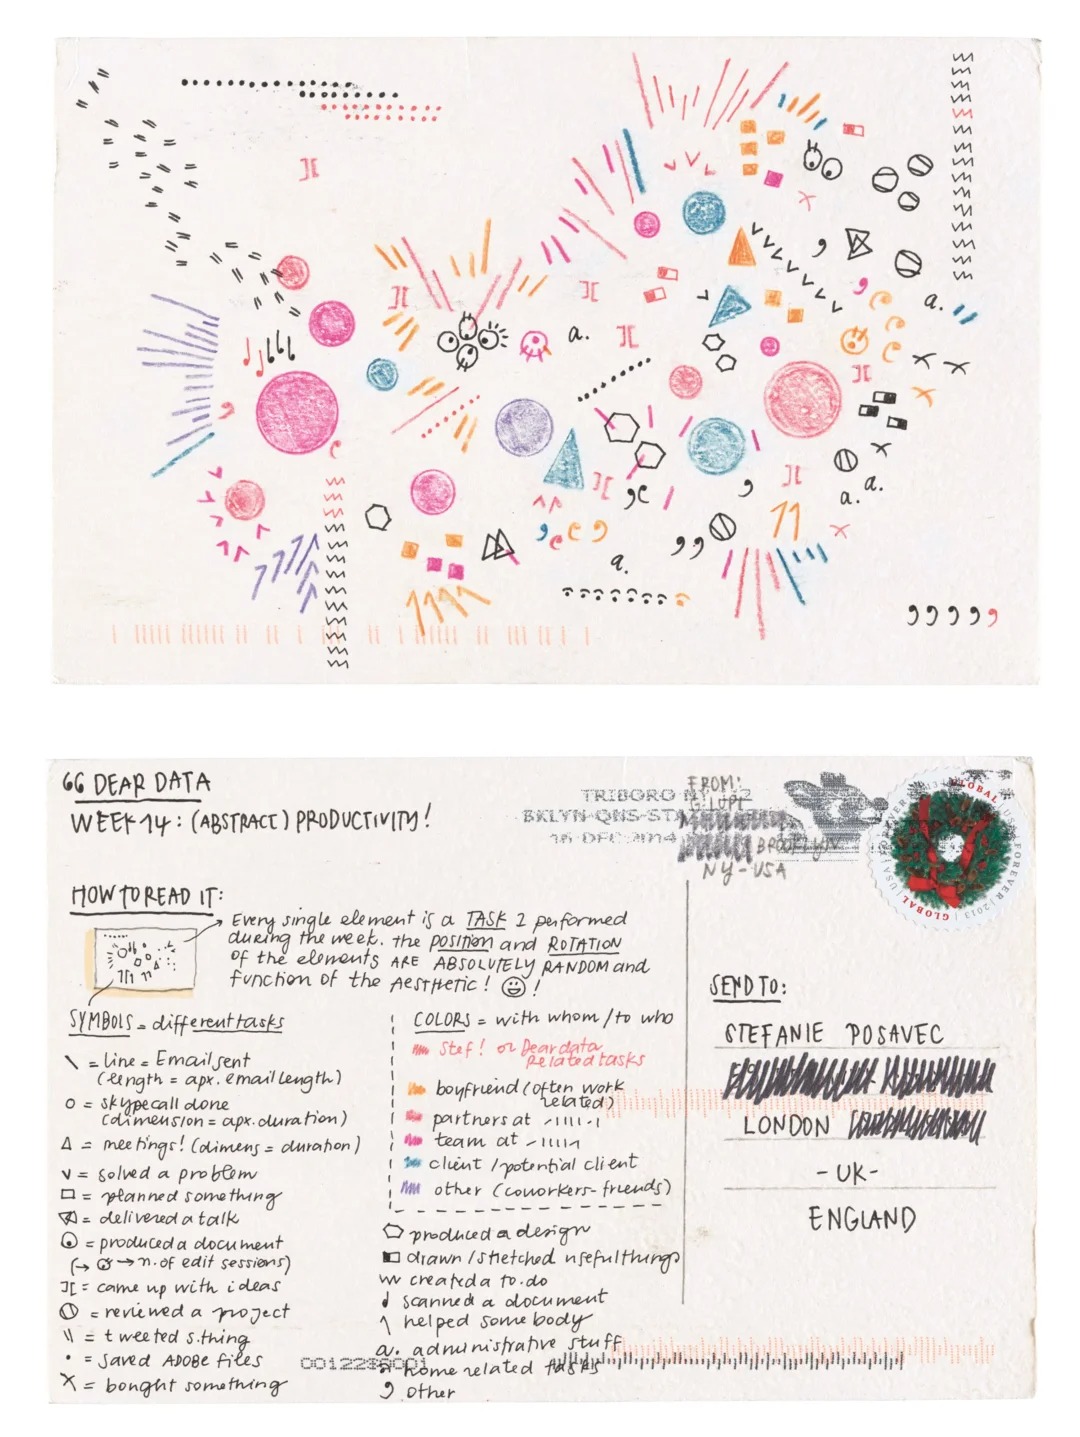 a.
a.
a.
a.
a.
DEAR DATA
WEEK 14: (ABSTRACT) PRODUCTIVITY!
HOW TO READ IT:
Every single element is a TASK I performed
during the week. the POSITION and ROTATION
of the elements ARE ABSOLUTELY RANDOM and
function of the AESTHETIC! !
SYMBOLS = different tasks
\ = line = Email sent
(length = apx. email length)
O = skype call done
(dimension = apx. duration)
Δ = meetings! (dimens = duration)
v = solved a problem
□ = planned something
= delivered a talk
= produced a document
(→ → n. of edit sessions)
][ = came up with ideas
= reviewed a project
\\ = tweeted s.thing
• = saved ADOBE files
X = bought something
COLORS = with whom / to who
Stef! or Dear data
Related tasks
boyfriend (often work
related)
partners at
team at
client / potential client
other (coworkers - friends)
produced a design
drawn / sketched useful things
created a to.do
scanned a document
helped somebody
a. administrative stuff
home related tasks
other
FROM:
G. LUPI
BROOKLYN
NY - USA
TRIBORO NY
BKLYN-QNS-STA
16 DEC 2014
GLOBAL
FOREVER
2013
USA
GLOBAL
SEND TO:
STEFANIE POSAVEC
LONDON
- UK -
ENGLAND